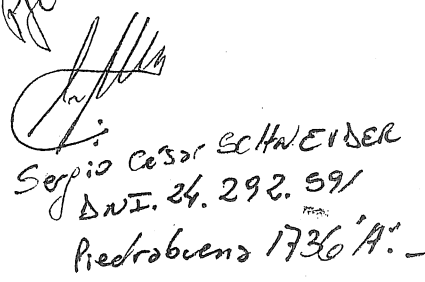 Sergio César SCHNEIDER
DNI. 24. 292. 591
Piedrabuena 1736 "A".-